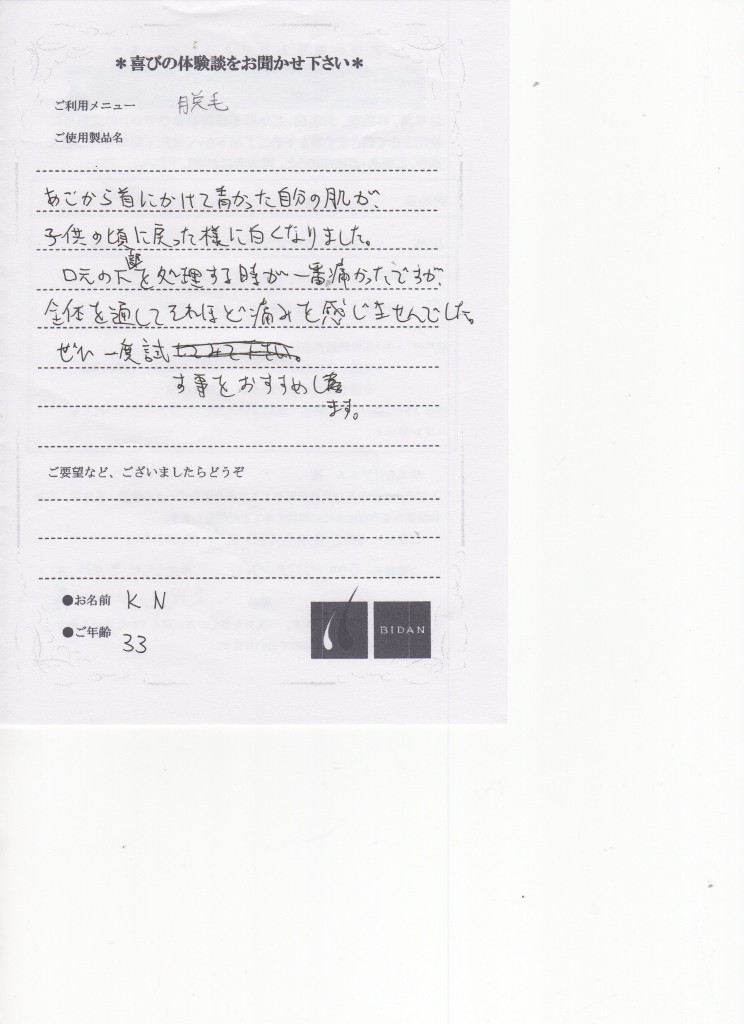 ＊喜びの体験談をお聞かせ下さい＊
ご利用メニュー 脱毛
ご使用製品名
あごから首にかけて青かった自分の肌が、
子供の頃に戻った様に白くなりました。
口元の下を処理する時が一番痛かったですが、
全体を通してそれほど痛みを感じませんでした。
ぜひ一度試
す事をおすすめし
ます。
ご要望など、ございましたらどうぞ
●お名前 K N
●ご年齢 33
BIDAN